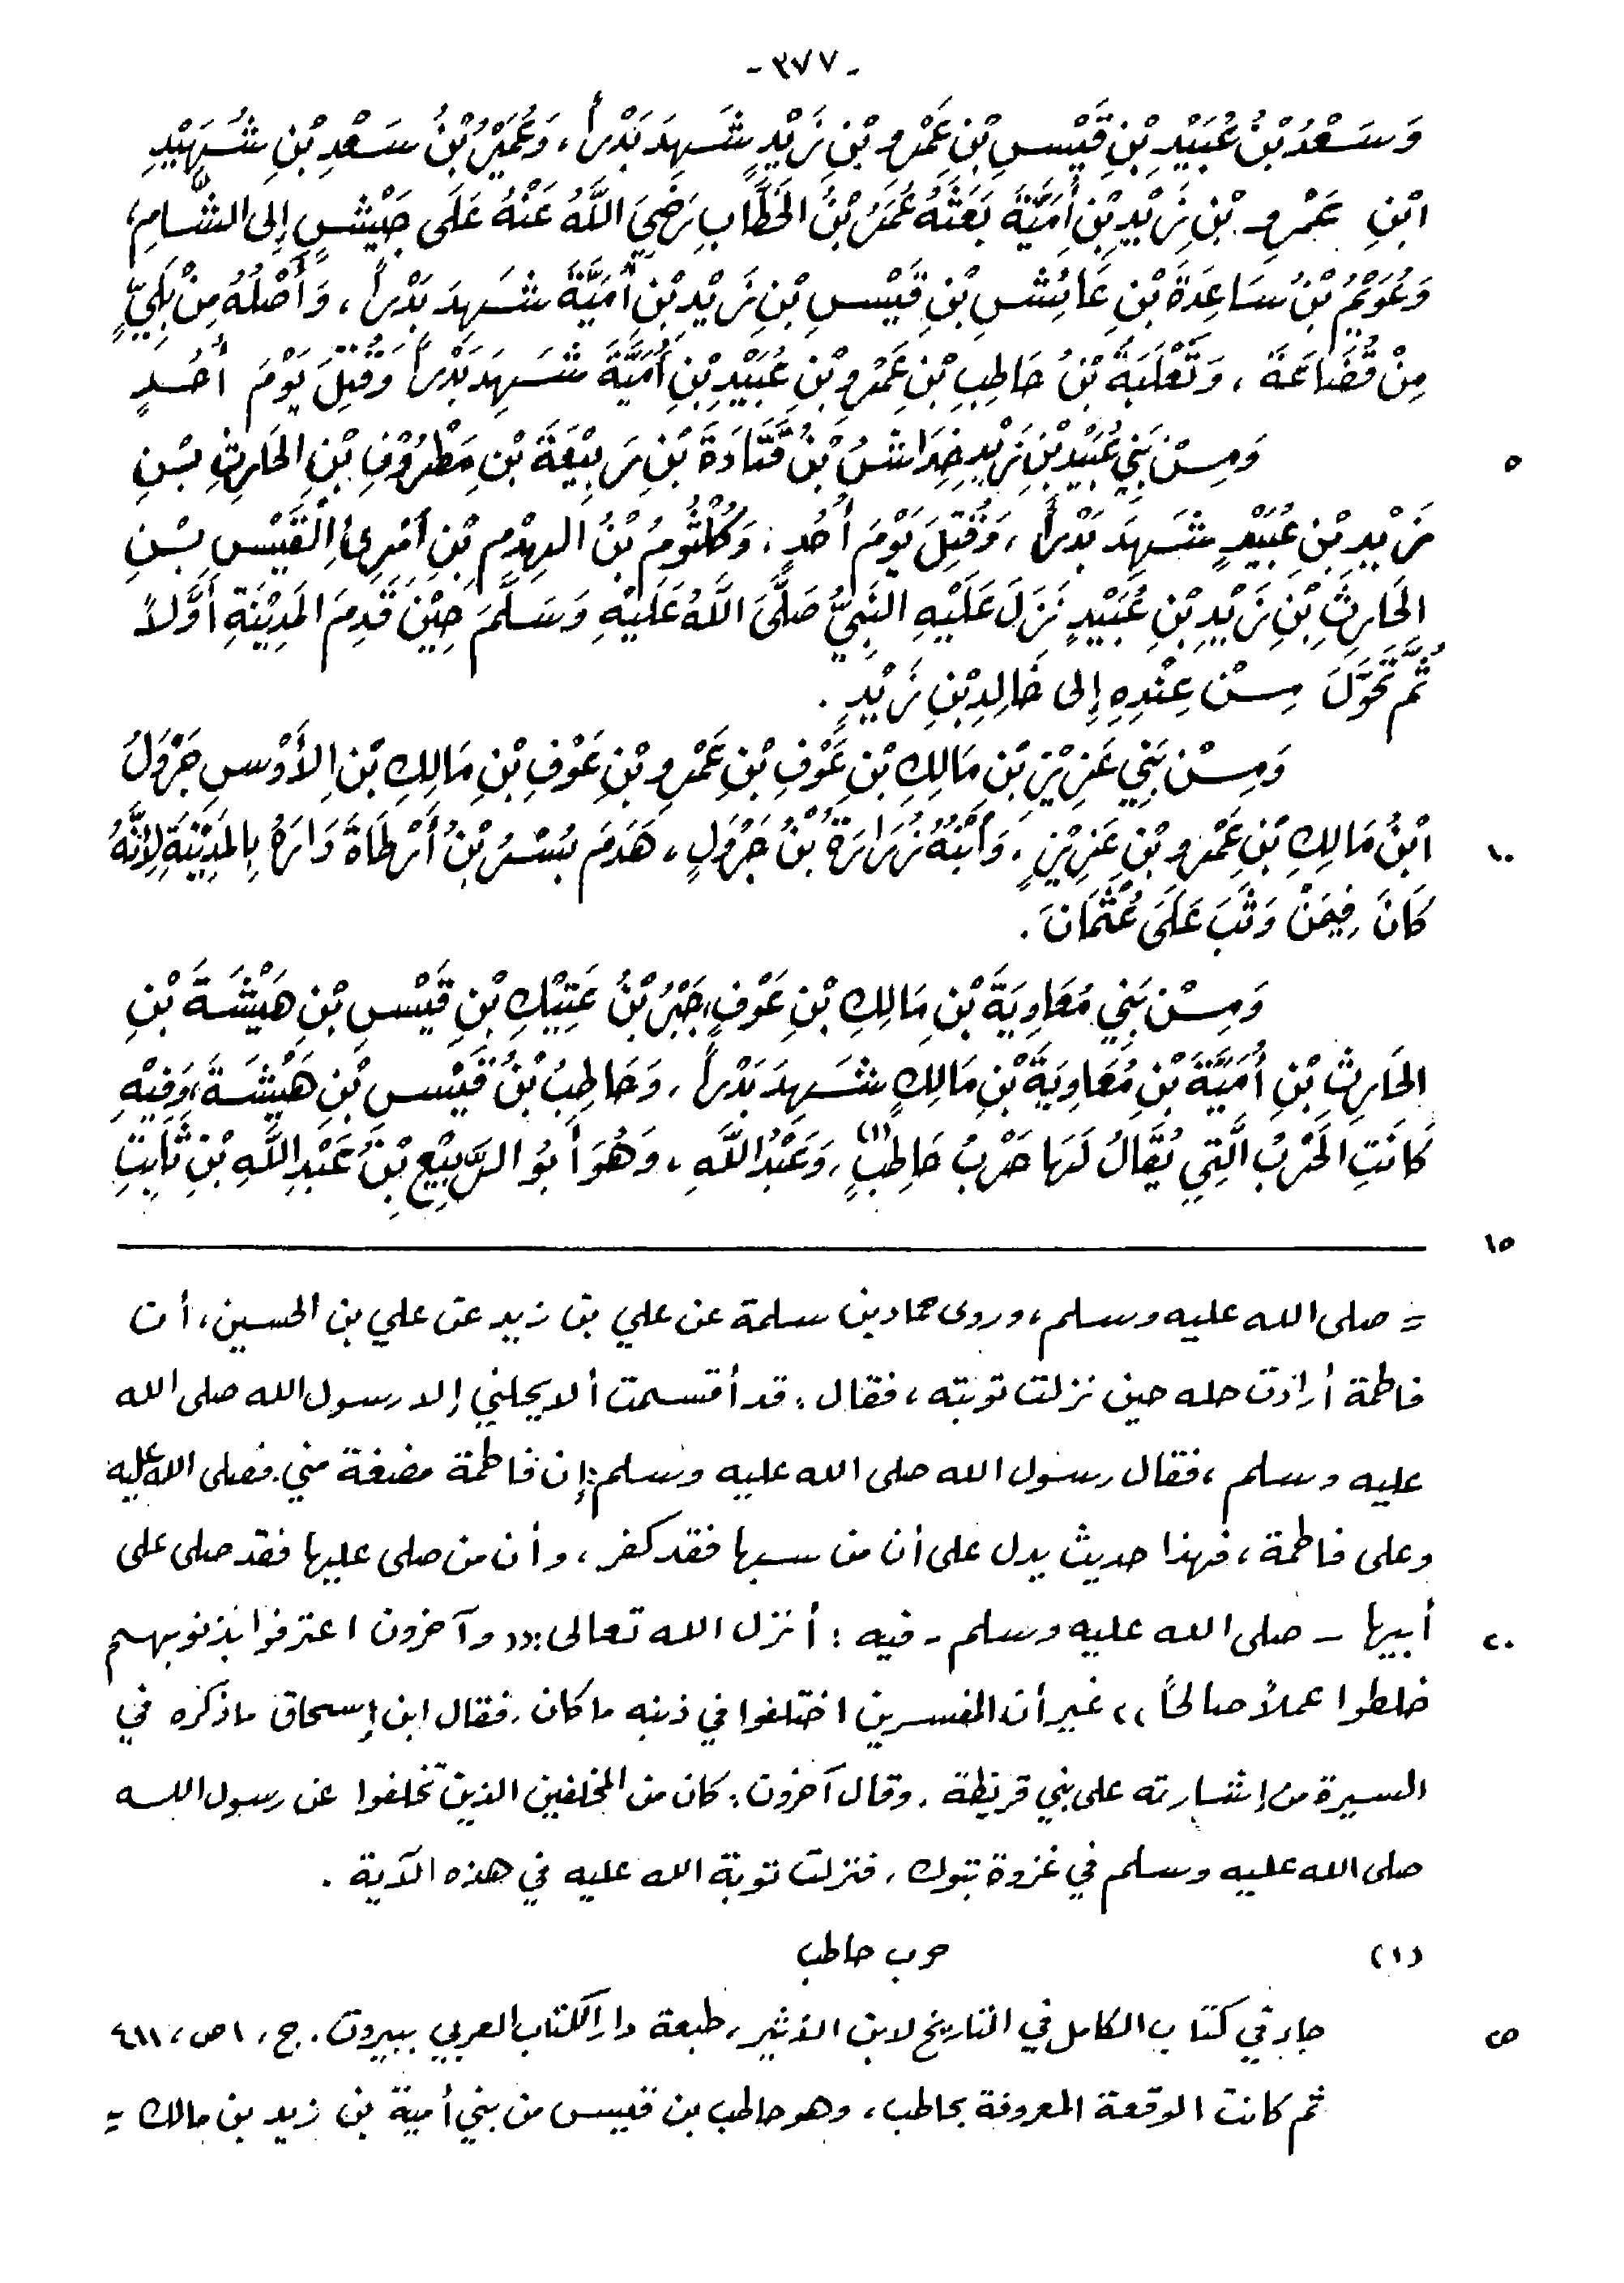 - ٣٧٧ -
وَسَعْدُ بْنُ عُبَيْدِ بْنِ قَيْسِ بْنِ عَمْرِو بْنِ زَيْدٍ شَهِدَ بَدْراً، وَعُمَيْرُ بْنُ سَعْدِ بْنِ شُهَيْدِ
ابْنِ عَمْرِو بْنِ زَيْدِ بْنِ أُمَيَّةَ بَعَثَهُ عُمَرُ بْنُ الخَطَّابِ رَضِيَ اللَّهُ عَنْهُ عَلَى جَيْشٍ إِلى الشَّامِ،
وَعُوَيْمُ بْنُ سَاعِدَةَ بْنِ عَائِشِ بْنِ قَيْسِ بْنِ زَيْدِ بْنِ أُمَيَّةَ شَهِدَ بَدْراً، وَأَصْلُهُ مِنْ بَلِيٍّ
مِنْ قُضَاعَةَ، وَثَعْلَبَةُ بْنُ حَاطِبِ بْنِ عَمْرِو بْنِ عُبَيْدِ بْنِ أُمَيَّةَ شَهِدَ بَدْراً وَقُتِلَ يَوْمَ أُحُدٍ
٥ وَمِنْ بَنِي عُبَيْدِ بْنِ زَيْدٍ خِدَاشُ بْنُ قَتَادَةَ بْنِ رَبِيْعَةَ بْنِ مَطْرُوْفِ بْنِ الحَارِثِ بْنِ
زَيْدِ بْنِ عُبَيْدٍ شَهِدَ بَدْراً، وَقُتِلَ يَوْمَ أُحُدٍ، وَكُلْثُومُ بْنُ الهِدْمِ بْنِ امْرِئِ الْقَيْسِ بْنِ
الحَارِثِ بْنِ زَيْدِ بْنِ عُبَيْدٍ نَزَلَ عَلَيْهِ النَّبِيُّ صَلَّى اللَّهُ عَلَيْهِ وَسَلَّمَ حِيْنَ قَدِمَ المَدِيْنَةِ أَوَّلاً
ثُمَّ تَحَوَّلَ مِنْ عِنْدِهِ إِلى خَالِدِ بْنِ زَيْدٍ.
وَمِنْ بَنِي عَزِيْزِ بْنِ مَالِكِ بْنِ عَوْفِ بْنِ عَمْرِو بْنِ عَوْفِ بْنِ مَالِكِ بْنِ الأَوْسِ جَرْوَلُ
١٠ ابْنُ مَالِكِ بْنِ عَمْرِو بْنِ عَزِيْزٍ، وَابْنُهُ زُرَارَةُ بْنُ جَرْوَلٍ، هَدَمَ بُسْرُ بْنُ أَرْطَاةَ دَارَهُ بِالمَدِيْنَةِ لِأَنَّهُ
كَانَ فِيمَنْ وَثَبَ عَلَى عُثْمَانَ.
وَمِنْ بَنِي مُعَاوِيَةَ بْنِ مَالِكِ بْنِ عَوْفٍ، جَبْرُ بْنُ عَتِيْكِ بْنِ قَيْسِ بْنِ هَيْشَةَ بْنِ
الحَارِثِ بْنِ أُمَيَّةَ بْنِ مُعَاوِيَةَ بْنِ مَالِكٍ شَهِدَ بَدْراً، وَحَاطِبُ بْنُ قَيْسِ بْنِ هَيْشَةَ، وَفِيْهِ
كَانَتِ الحَرْبُ الَّتِي يُقَالُ لَهَا حَرْبُ حَاطِبٍ (١)، وَعَبْدُ اللَّهِ، وَهُوَ أَبُو الرَّبِيْعِ بْنُ عَبْدِ اللَّهِ بْنِ ثَابِتِ
١٥
= صلى الله عليه وسلم، وروى حماد بن سلمة عن علي بن زيد عن علي بن الحسين، أن
فاطمة أرادت حله حين نزلت توبته، فقال: قد أقسمت ألا يحلني إلا رسول الله صلى الله
عليه وسلم، فقال رسول الله صلى الله عليه وسلم: إن فاطمة مضغة مني. فصلى الله عليه
وعلى فاطمة، فهذا حديث يدل على أن من سبها فقد كفر، وأن من صلى عليها فقد صلى على
٢٠ أبيها - صلى الله عليه وسلم - فيه: أنزل الله تعالى: (( وآخرون اعترفوا بذنوبهم
خلطوا عملاً صالحاً )) غير أن المفسرين اختلفوا في ذنبه ما كان، فقال ابن إسحاق ما ذكره في
السيرة من إشارته على بني قريظة، وقال آخرون: كان من المخلفين الذين تخلفوا عن رسول الله
صلى الله عليه وسلم في غزوة تبوك، فنزلت توبة الله عليه في هذه الآية.
(١) حرب حاطب
٢٥ جاء في كتاب الكامل في التاريخ لابن الأثير، طبعة دار الكتاب العربي ببيروت. ج، ١ ص، ٤١١
ثم كانت الوقعة المعروفة بحاطب، وهو حاطب بن قيس من بني أمية بن زيد بن مالك =